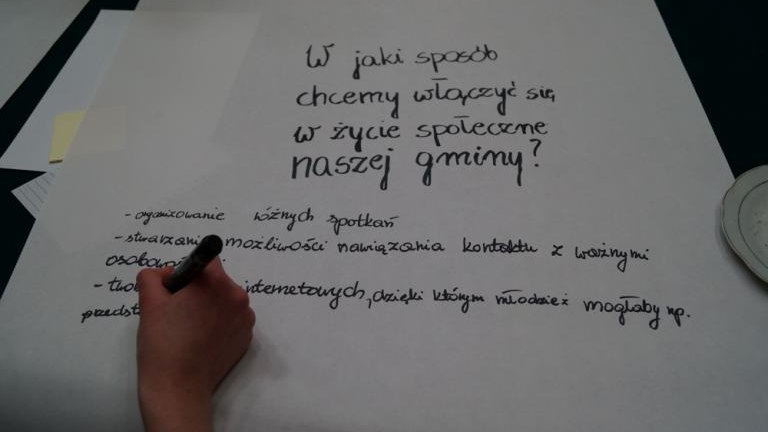 W jaki sposób
chcemy włączyć się
w życie społeczne
naszej gminy?
- organizowanie różnych spotkań
- stwarzanie możliwości nawiązania kontaktu z ważnymi
- internetowych, dzięki którym młodzież mogłaby np.